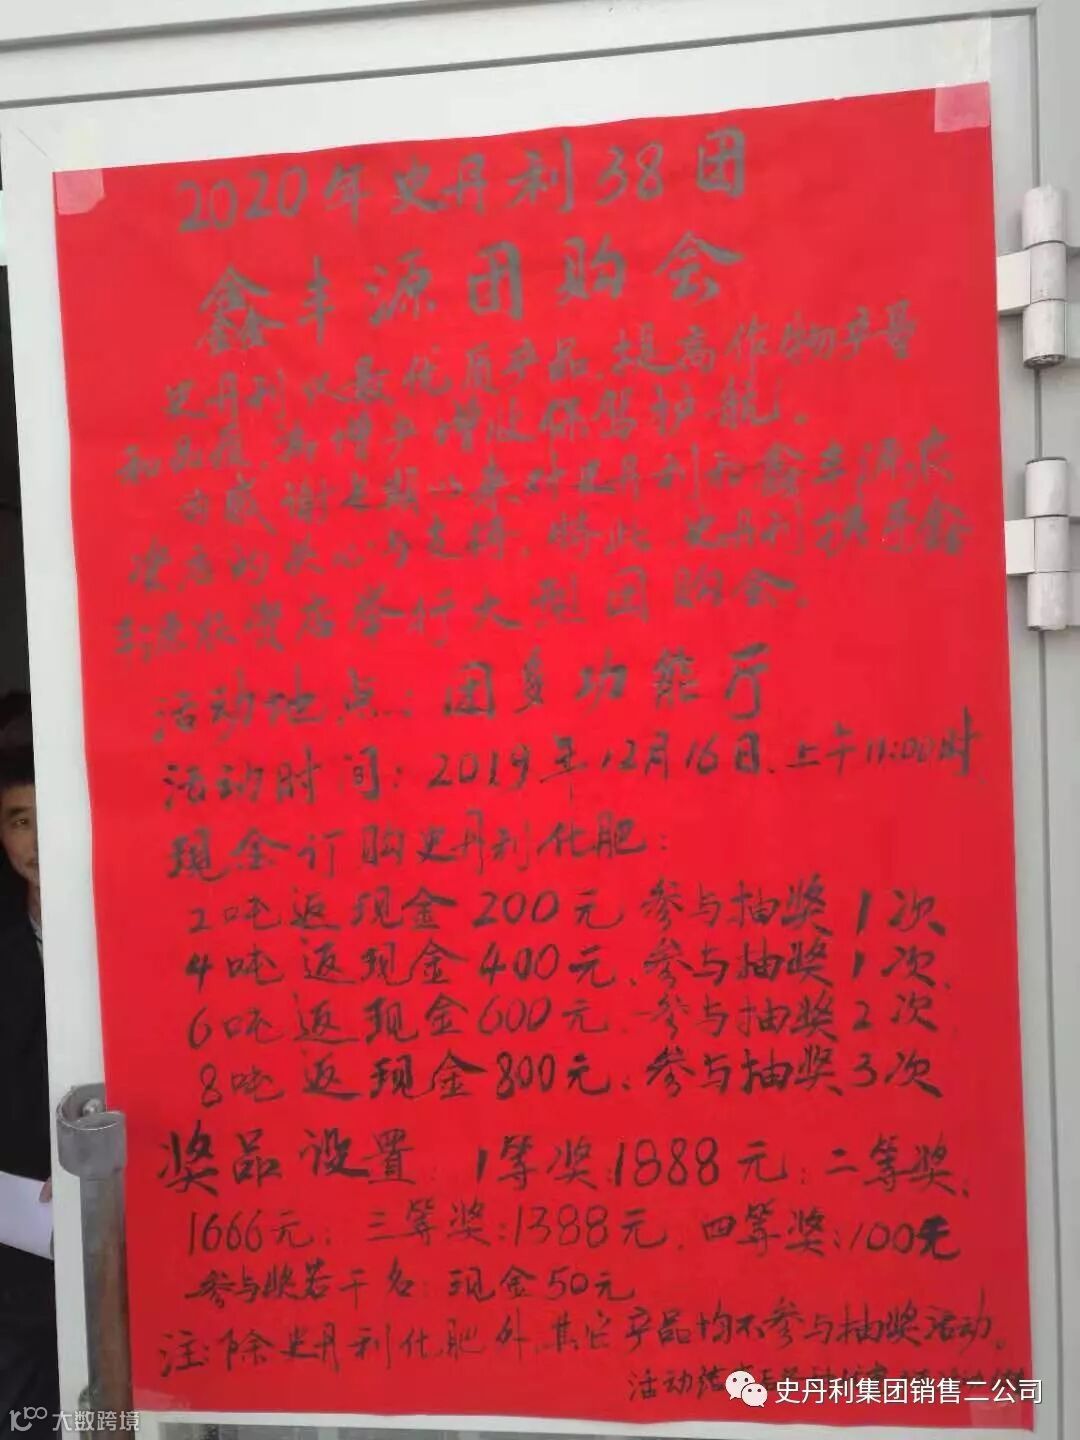 2020年史丹利38团
鑫丰源团购会
史丹利以最优质产品,提高作物产量
和品质,为增产增收保驾护航。
为感谢长期以来对史丹利和鑫丰源农
资店的关心与支持,特此,史丹利携手鑫
丰源农资店举行大型团购会。
活动地点:团多功能厅
活动时间:2019年12月16日,上午11:00时.
现金订购史丹利化肥:
2吨返现金200元,参与抽奖1次
4吨返现金400元、参与抽奖1次、
6吨返现金600元、参与抽奖2次.
8吨返现金800元、参与抽奖3次
奖品设置:1等奖:1888元;二等奖:
1666元;三等奖:1388元,四等奖:100元
参与奖若干名:现金50元
注:除史丹利化肥外,其它产品均不参与抽奖活动。
活动结
史丹利集团销售二公司
100 大数跨境